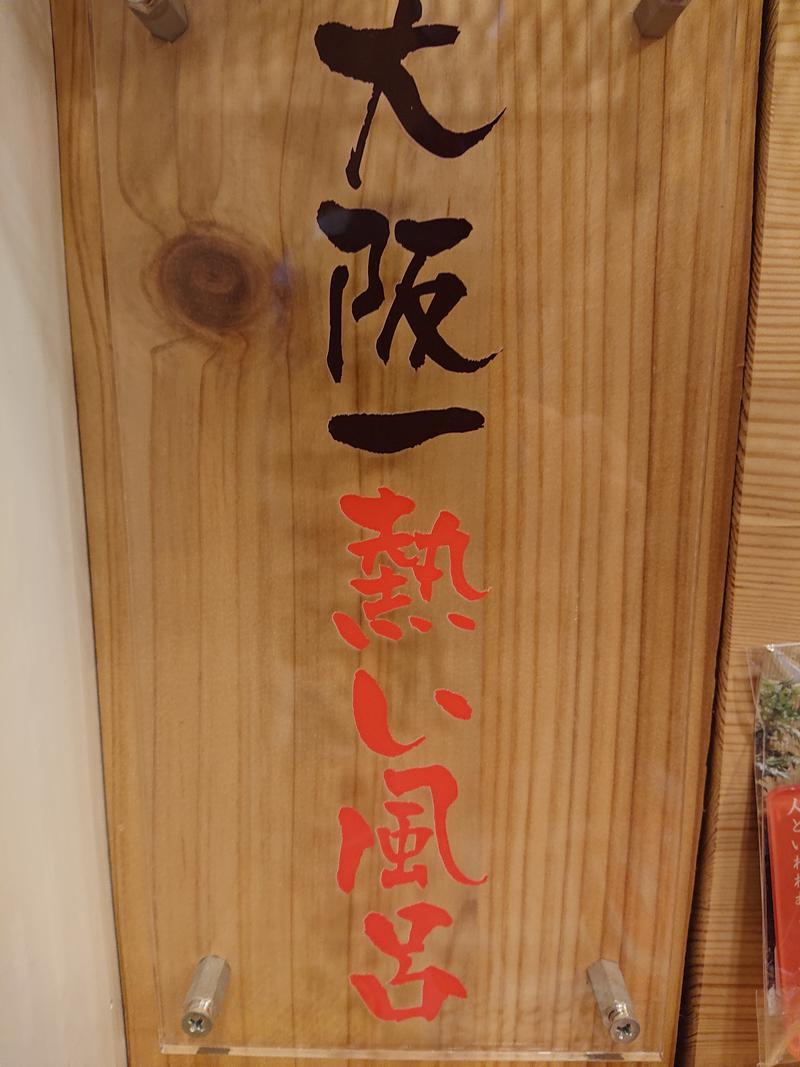 大阪一熱い風呂
人といわれま